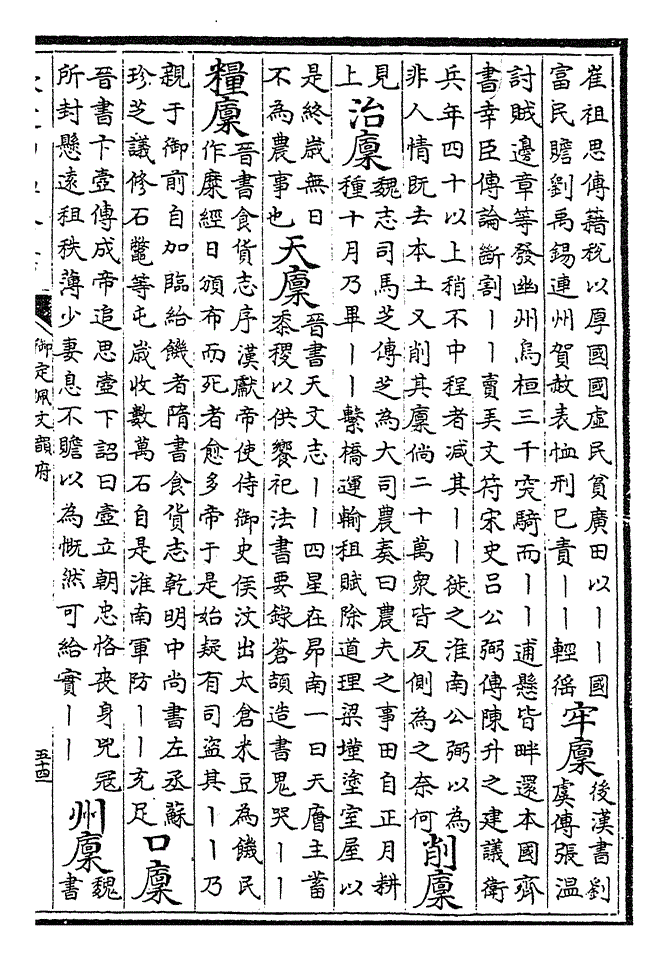 崔祖思傳藉稅以厚國國虛民貧廣田以丨丨國
富民贍劉禹錫連州賀赦表恤刑已責丨丨輕徭
牢廩
後漢書劉
虞傳張温
討賊邊章等發幽州烏桓三千突騎而丨丨逋懸皆畔還本國齊
書幸臣傳論斷割丨丨賣弄文符宋史呂公弼傳陳升之建議衛
兵年四十以上稍不中程者減其丨丨徙之淮南公弼以為
非人情既去本土又削其廩倘二十萬衆皆反側為之奈何
削廩
見
上
治廩
魏志司馬芝傳芝為大司農奏曰農夫之事田自正月耕
種十月乃畢丨丨繫橋運輸租賦除道理梁墐塗室屋以
是終歲無日
不為農事也
天廩
晉書天文志丨丨四星在昴南一曰天廥主蓄
黍稷以供饗祀法書要錄蒼頡造書鬼哭丨丨
糧廩
晉書食貨志序漢獻帝使侍御史侯汶出太倉米豆為饑民
作糜經日頒布而死者愈多帝于是始疑有司盜其丨丨乃
親于御前自加臨給饑者隋書食貨志乾明中尚書左丞蘇
珍芝議修石鼈等屯歲收數萬石自是淮南軍防丨丨充足
口廩
晉書卞壼傳成帝追思壼下詔曰壼立朝忠恪喪身兇寇
所封懸遠租秩薄少妻息不贍以為慨然可給實丨丨
州廩
魏
書
御定佩文韻府
五十四